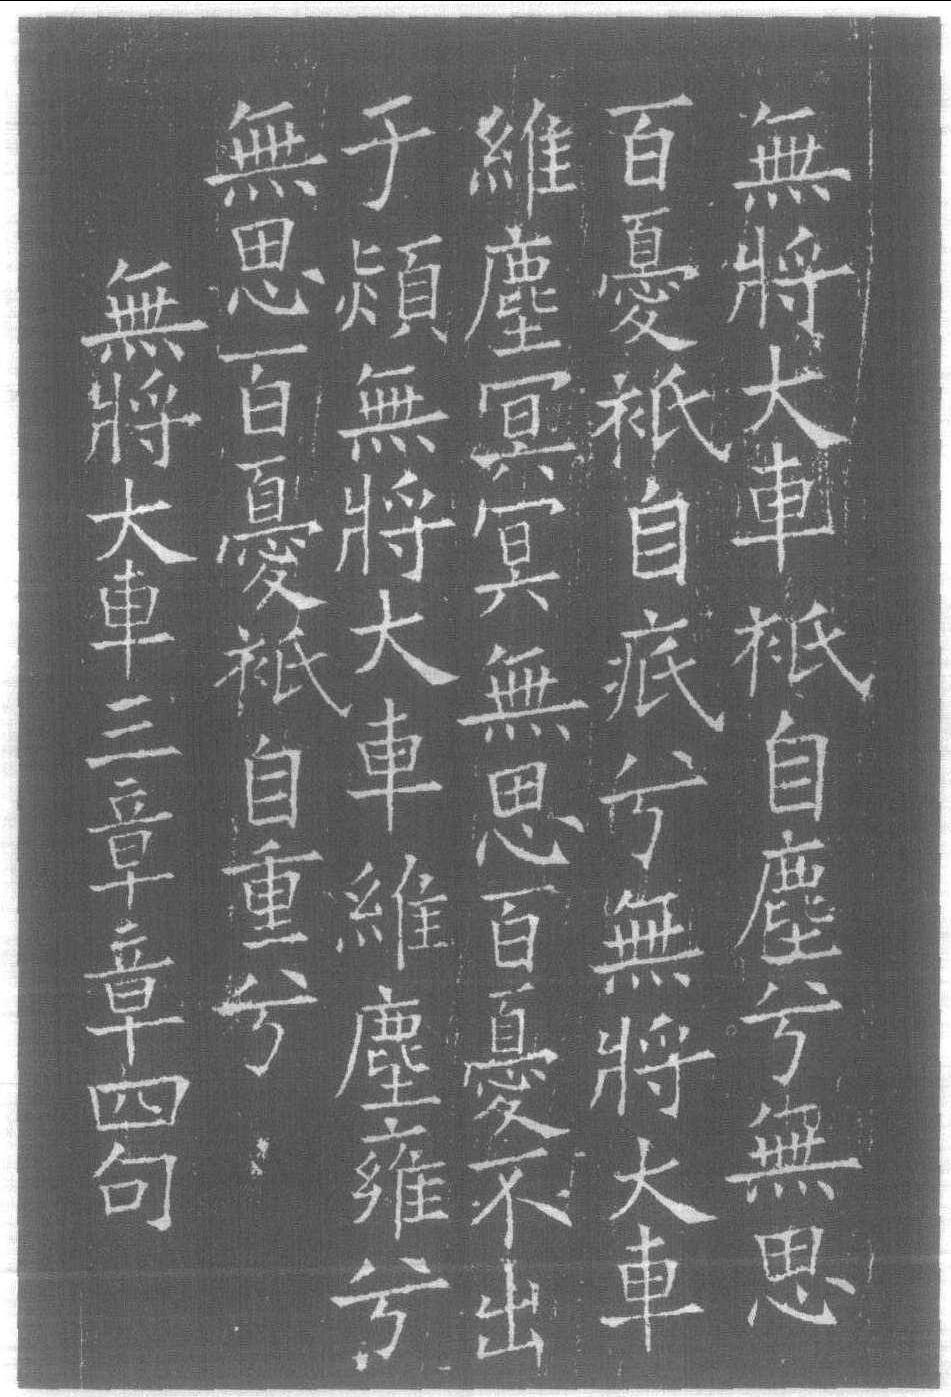 無將大車祇自塵兮無思
百憂祇自疧兮無將大車
維塵冥冥無思百憂不出
于熲無將大車維塵雍兮
無思百憂祇自重兮
無將大車三章章四句